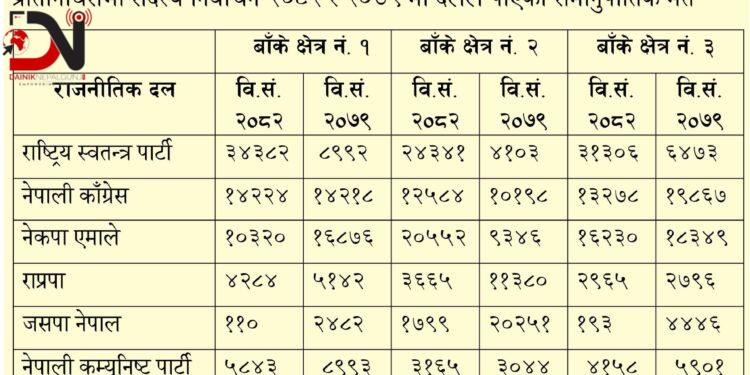 प्रतिनिधिसभा सदस्य निर्वाचन २०८२ र २०७९ मा दलले पाएको समानुपातिक मत
DN
DAINIK NEPALGUNJ
बाँके क्षेत्र नं. १ बाँके क्षेत्र नं. २ बाँके क्षेत्र नं. ३
राजनीतिक दल वि.सं. २०८२ वि.सं. २०७९ वि.सं. २०८२ वि.सं. २०७९ वि.सं. २०८२ वि.सं. २०७९
राष्ट्रिय स्वतन्त्र पार्टी ३४३८२ ८९९२ २४३४१ ४१०३ ३१३०६ ६४७३
नेपाली काँग्रेस १४२२४ १४२१८ १२५८४ १०१९८ १३२७८ १९८६७
नेकपा एमाले १०३२० १६८७६ २०५५२ ९३४६ १६२३० १८३४९
राप्रपा ४२८४ ५१४२ ३६६५ ११३८० २९६५ २७९६
जसपा नेपाल ११० २४८२ १७९९ २०२५१ १९३ ४४४६
नेपाली कम्युनिष्ट पार्टी ५८४३ ८९९३ ३१६५ ३०४४ ४१५८ ५९०१